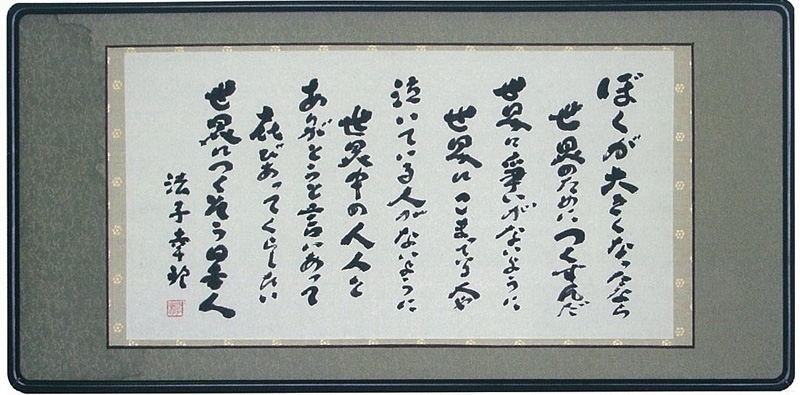 ぼくが大きくなったなら
世界のためにつくすんだ
世界に争いがないように
世界にこまっている人や
泣いている人がないように
世界中の人人と
ありがとうと言いあって
喜びあってくらしたい
世界につくそう日本人
法子幸